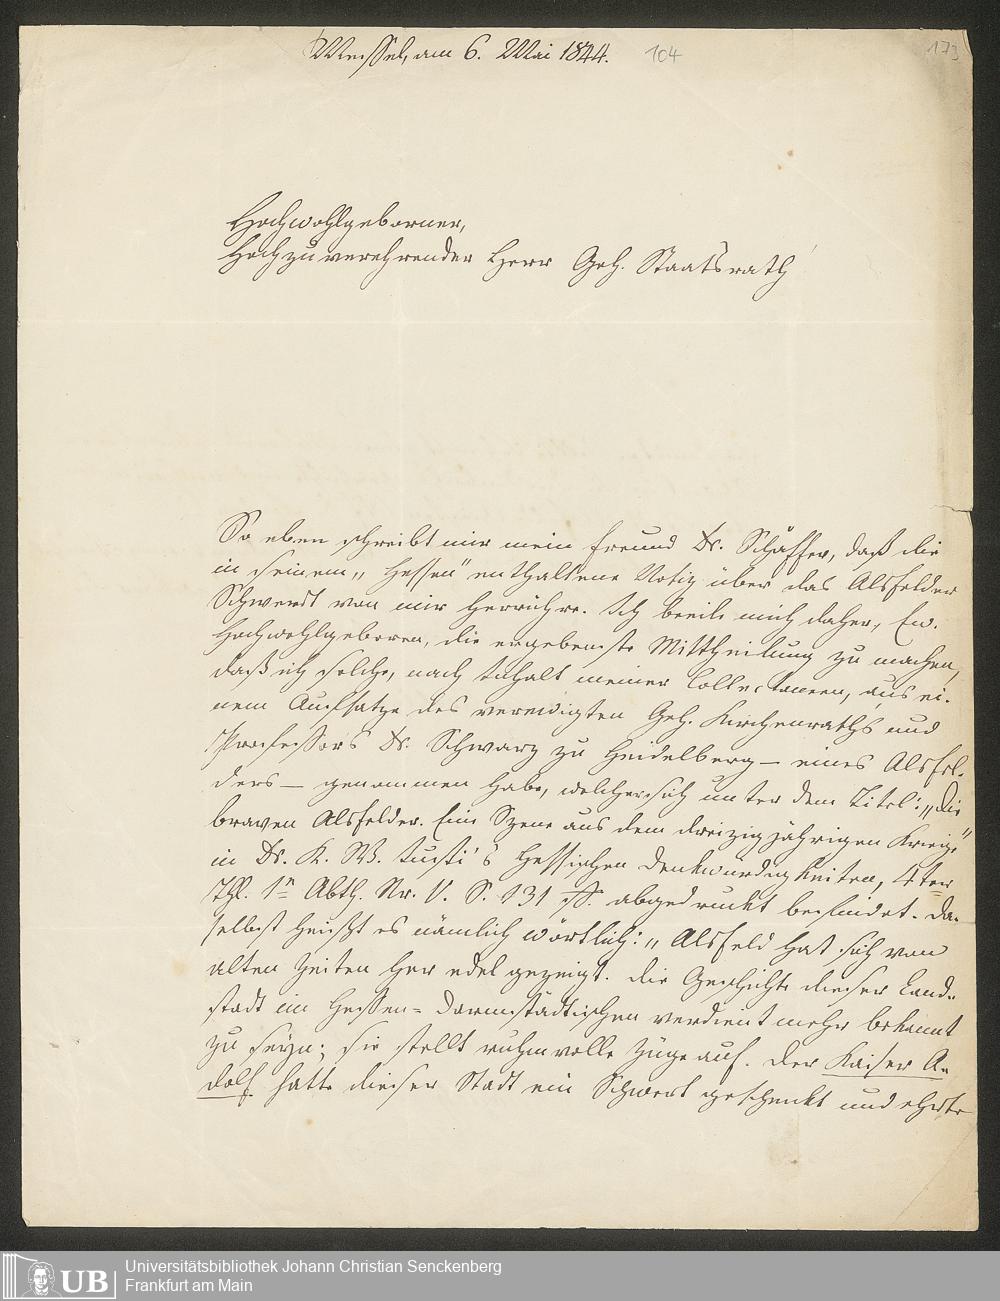 Messel, am 6. Mai 1844.
104
173
Hochwohlgeborner,
Hochzuverehrender Herr Geh. Staatsrath
So eben schreibt mir mein Freund Dr. Schäffer, daß die
in seinem „Hessen" enthaltene Notiz über das Alsfelder
Schwerdt von mir herrühre. Ich beeile mich daher, Ew.
Hochwohlgeboren, die ergebenste Mittheilung zu machen,
daß ich solche, nach Inhalt meiner Collectaneen, aus ei-
nem Aufsatze des verewigten Geh. Kirchenraths und
Professors Dr. Schwarz zu Heidelberg – eines Alsfel-
ders – genommen habe, welcher sich unter dem Titel: „Die
braven Alsfelder. Eine Szene aus dem dreizigjährigen Kriege"
in Dr. K. W. Justi's Hessischen Denkwürdigkeiten, 4ter
Thl. 1r Abth. Nr. V. S. 131 ff. abgedruckt befindet. Da-
selbst heißt es nämlich wörtlich: „Alsfeld hat sich von
alten Zeiten her edel gezeigt. Die Geschichte dieser Land-
stadt im Hessen-Darmstädtischen verdient mehr bekannt
zu seyn; sie stellt ruhmvolle Züge auf. Der Kaiser A-
dolf hatte dieser Stadt ein Schwert geschenkt und ehrte
UB
Universitätsbibliothek Johann Christian Senckenberg
Frankfurt am Main